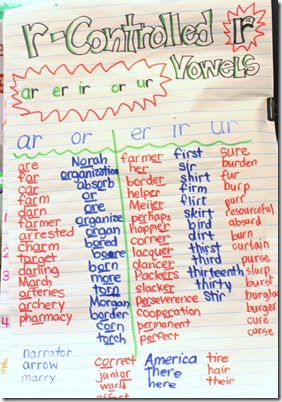 r-Controlled r
Vowels
ar er ir or ur
ar or er ir ur
are
far
car
farm
darn
farmer
arrested
charm
target
darling
March
arteries
archery
pharmacy
Norah
organization
absorb
or
are
organize
organ
bored
born
more
torn
Morgan
border
corn
torch
farmer
her
border
helper
Meijer
perhaps
hopper
corner
lacquer
dancer
Packers
slacker
perseverence
cooperation
permanent
perfect
first
sir
shirt
firm
flirt
skirt
bird
dirt
thirst
third
thirteenth
thirty
stir
sure
burden
fur
burp
purr
resourceful
absurd
burn
curtain
purse
slurp
burst
burglar
burger
cure
curse
narrator
arrow
marry
correct
junior
world
America
there
here
tire
hair
their